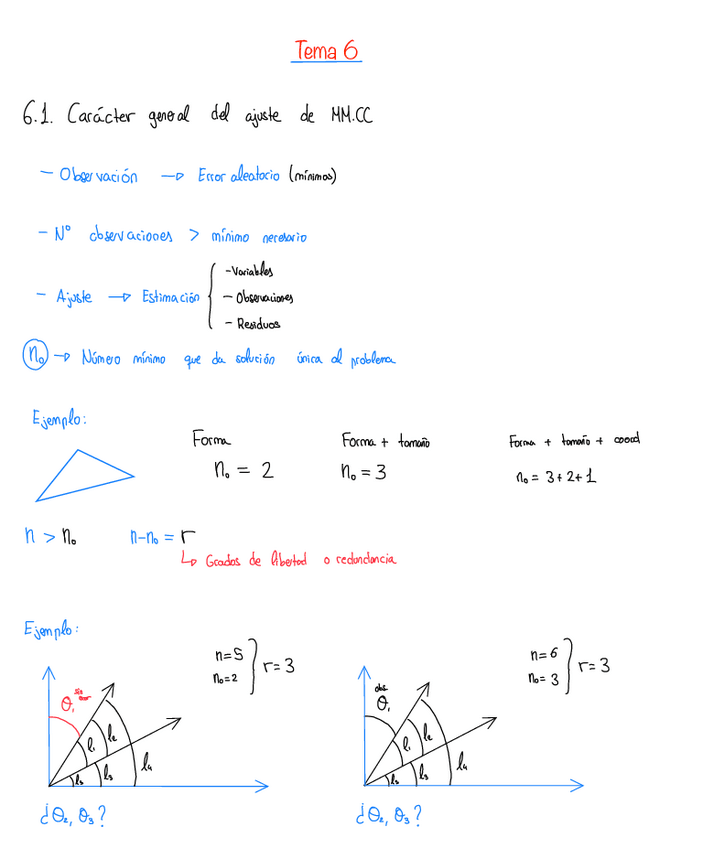 Tema 6
6.1. Carácter general del ajuste de MM.CC
- Observación → Error aleatorio (mínimos)
- Nº observaciones > mínimo necesario
- Ajuste → Estimación
- Variables
- Observaciones
- Residuos
n₀ → Número mínimo que da solución única al problema
Ejemplo:
Forma
n₀ = 2
Forma + tamaño
n₀ = 3
Forma + tamaño + coord
n₀ = 3+2+1
n > n₀ n-n₀ = r
↳ Grados de libertad o redundancia
Ejemplo:
n=5
n₀=2
r=3
θ₁
l₁ l₂
l₅ l₃ l₄
¿θ₂, θ₃?
n=6
n₀= 3
r=3
obs
θ₁
l₁ l₂
l₅ l₃ l₄
¿θ₂, θ₃?